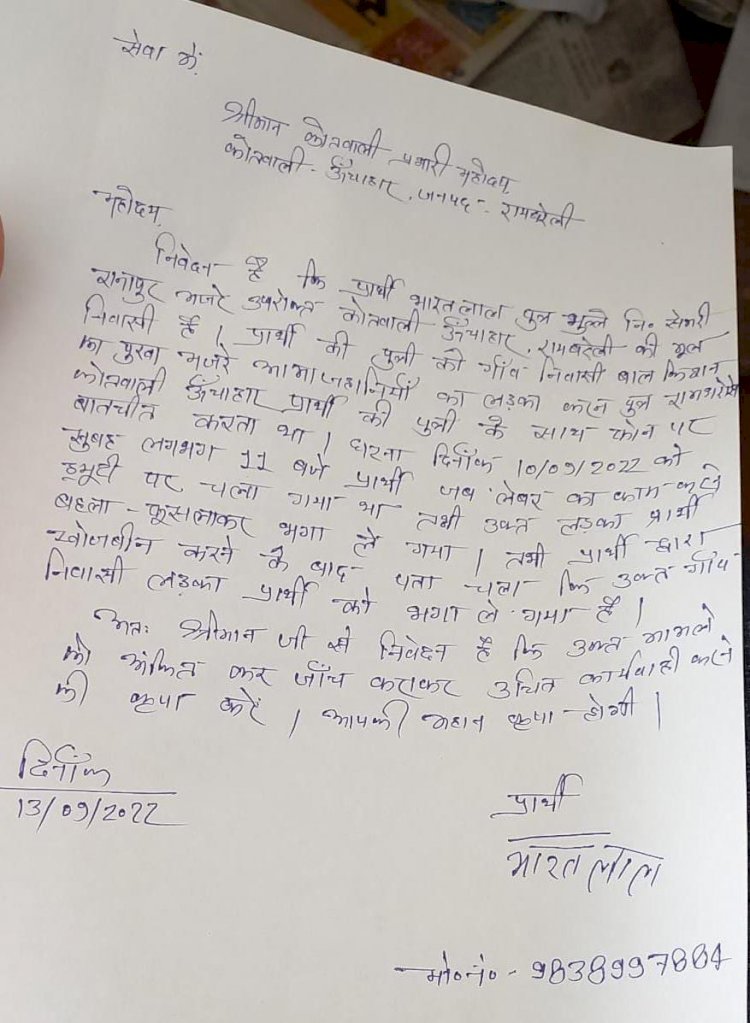 सेवा में,
श्रीमान कोतवाली प्रभारी महोदय,
कोतवाली - ऊँचाहार, जनपद - रायबरेली
महोदय,
निवेदन है कि प्रार्थी भारतलाल पुत्र भुल्ले नि० सेमरी
रानापुर मजरे उपरोक्त कोतवाली ऊँचाहार, रायबरेली की मूल
निवासी हैं । प्रार्थी की पुत्री को गाँव निवासी बाल किशन
का पुरवा मजरे का लड़का करन पुत्र
कोतवाली ऊँचाहार प्रार्थी की पुत्री के साथ फोन पर
बातचीत करता था । घटना दिनाँक 10/09/2022 को
सुबह लगभग 11 बजे प्रार्थी जब लेबर का काम करने
ड्यूटी पर चला गया था तभी उक्त लड़का प्रार्थी
बहला-फुसलाकर भगा ले गया । तभी प्रार्थी द्वारा
खोजबीन करने के बाद पता चला कि उक्त गाँव
निवासी लड़का प्रार्थी को भगा ले गया है ।
अतः श्रीमान जी से निवेदन है कि उक्त मामले
को अंकित कर जाँच कराकर उचित कार्यवाही करने
की कृपा करें । आपकी महान कृपा होगी ।
दिनाँक
13/09/2022
प्रार्थी
भारतलाल
मो०नं० - 9838997884